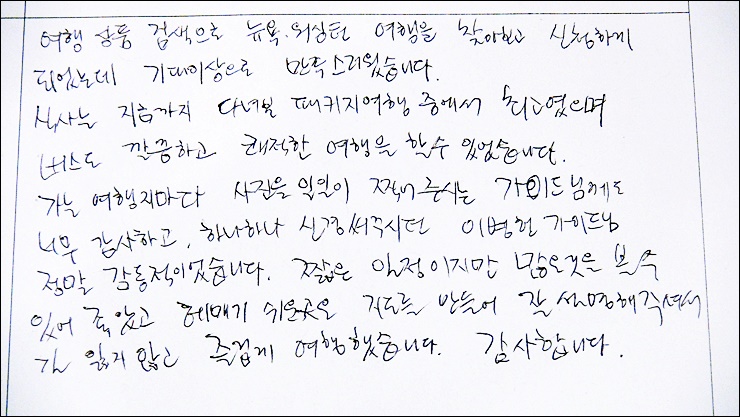 여행 상품 검색으로 뉴욕.워싱턴 여행을 찾아보고 신청하게
되었는데 기대이상으로 만족스러웠습니다.
식사는 지금까지 다녀본 패키지여행 중에서 최고였으며
버스도 깔끔하고 쾌적한 여행을 할수 있었습니다.
가는 여행지마다 사진을 일일이 찍어주시는 가이드님께도
너무 감사하고, 하나하나 신경써주시던 이병헌 가이드님
정말 감동적이었습니다. 짧은 일정이지만 많은것을 볼 수
있어 좋았고 헤매기 쉬운곳은 지도를 만들어 잘 설명해주셔서
길 잃지 않고 즐겁게 여행했습니다. 감사합니다.